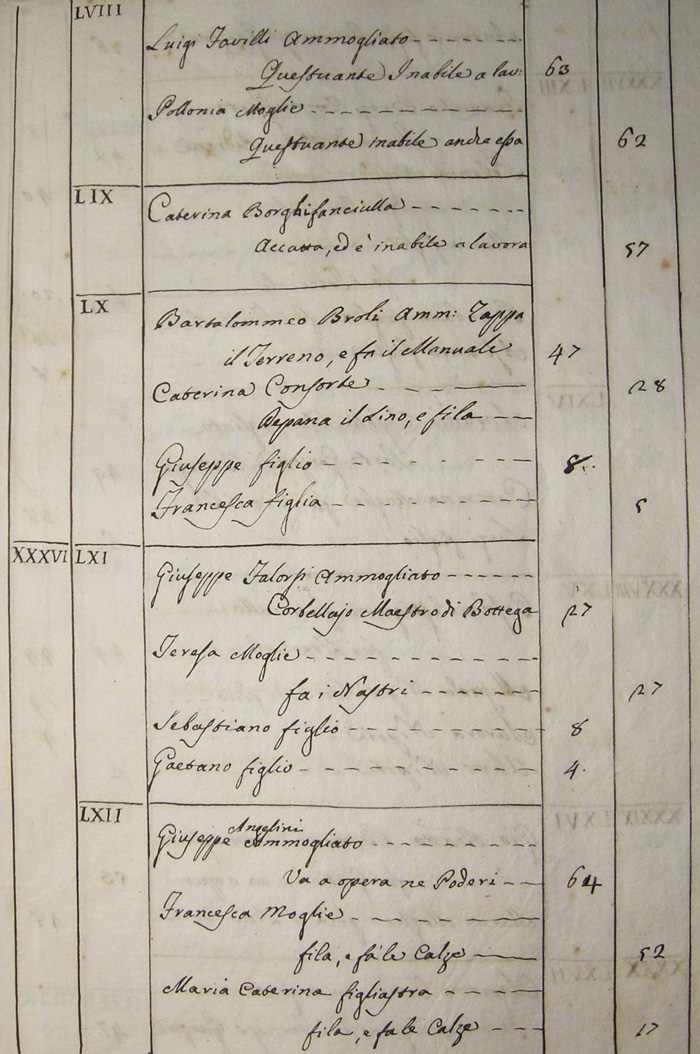 LVIII
Luigi Favilli Ammogliato
Questuante Inabile a lav: 63
Pollonia Moglie
Questuante inabile anche essa 62
LIX
Caterina Borghi fanciulla
Accatta, ed è inabile a lavora 57
LX
Bartolommeo Broli Amm: Zappa
il Terreno, e fa il Manuale 47
Caterina Consorte 28
Depana il Lino, e fila
Giuseppe figlio 8
Francesca figlia 5
XXXVI LXI
Giuseppe Falorsi Ammogliato
Corbellajo Maestro di Bottega 27
Teresa Moglie
fa i Nastri 27
Sebastiano figlio 8
Gaetano figlio 4
LXII
Angelini
Giuseppe Ammogliato
Va a opera ne Poderi 64
Francesca Moglie
fila, e fa le Calze 52
Maria Caterina figliastra
fila, e fa le Calze 17